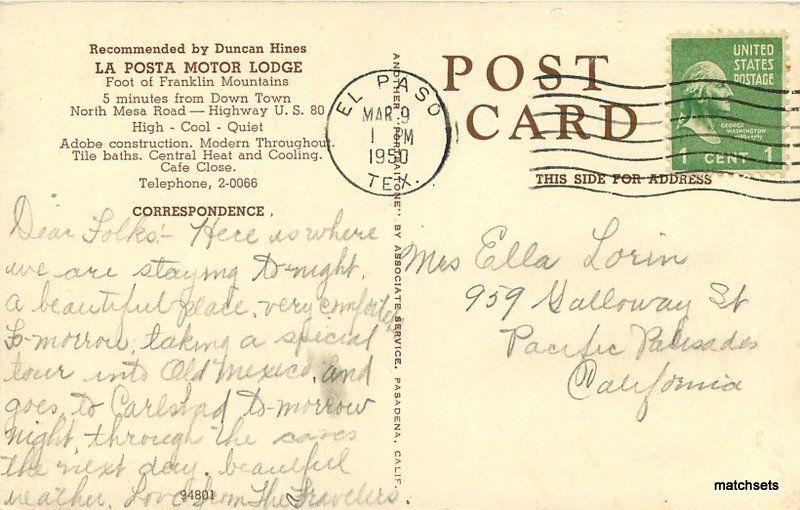 Recommended by Duncan Hines
LA POSTA MOTOR LODGE
Foot of Franklin Mountains
5 minutes from Down Town
North Mesa Road — Highway U. S. 80
High - Cool - Quiet
Adobe construction. Modern Throughout.
Tile baths. Central Heat and Cooling.
Cafe Close.
Telephone, 2-0066
CORRESPONDENCE
Dear Folks:- Here is where
we are staying to-night,
a beautiful place, very comfortable
To-morrow, taking a special
tour into Old Mexico, and
goes to Carlsbad to-morrow
night, through the caves
the next day. beautiful
weather. Love from The Travelers.
94801
ANOTHER "PORTRAITONE" BY ASSOCIATE SERVICE, PASADENA, CALIF.
POST
CARD
THIS SIDE FOR ADDRESS
EL PASO
MAR 9
1 PM
1950
TEX.
UNITED
STATES
POSTAGE
GEORGE
WASHINGTON
1789-1797
1 CENT 1
Mrs Ella Lorin
959 Galloway St
Pacific Palisades
California
matchsets